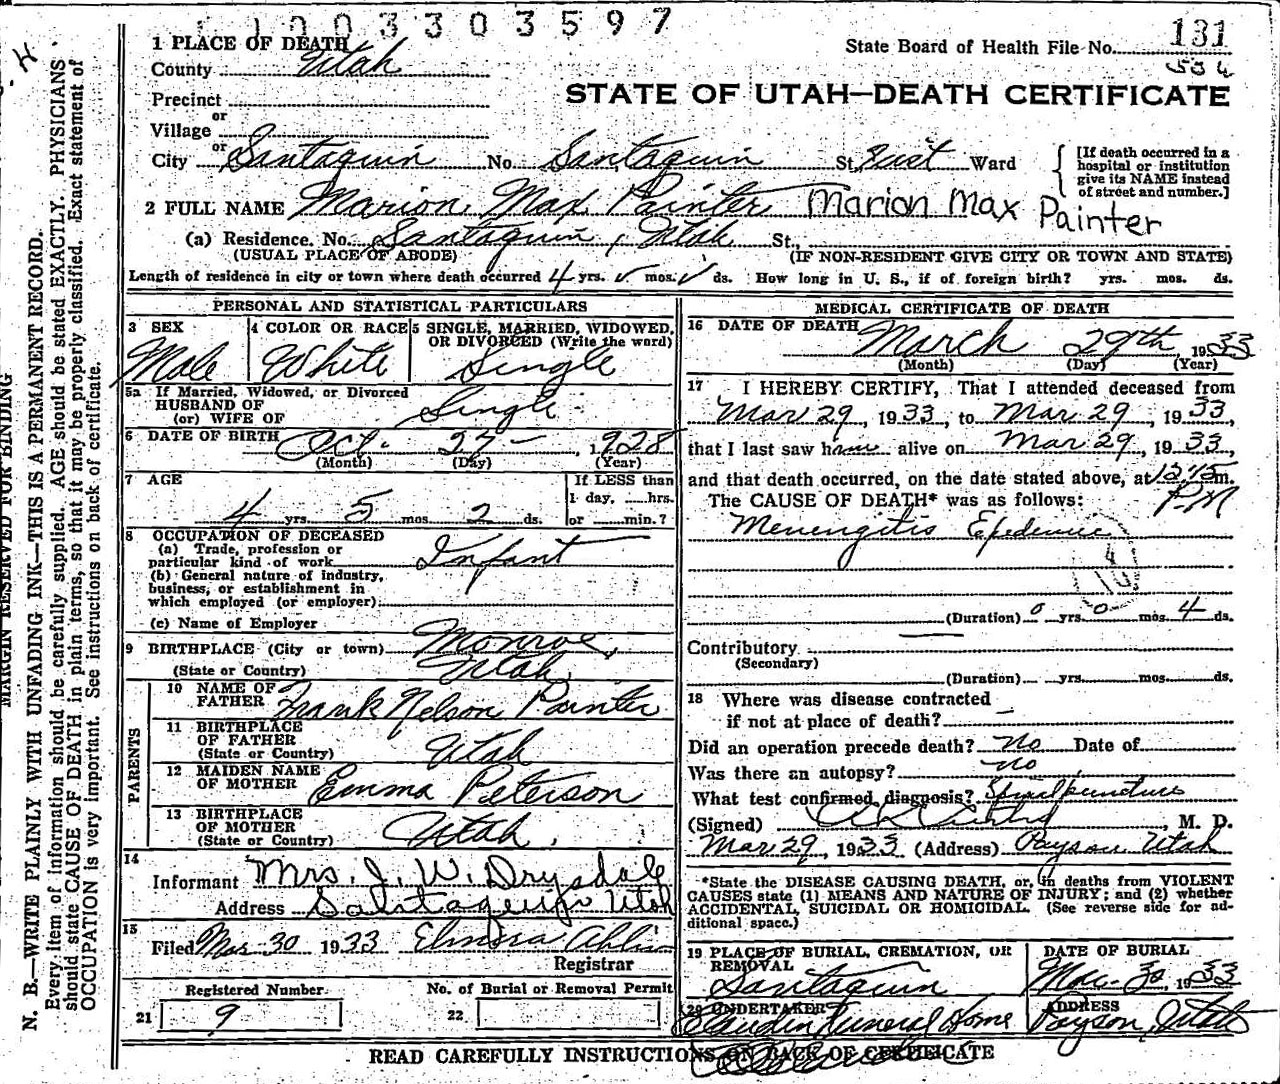 1003303597
1 PLACE OF DEATH
County Utah
State Board of Health File No. 131
534
Precinct
or
Village
STATE OF UTAH—DEATH CERTIFICATE
or
City Santaquin No. Santaquin St. East Ward
[If death occurred in a hospital or institution give its NAME instead of street and number.]
2 FULL NAME Marion Max Painter Marion Max Painter
(a) Residence. No. Santaquin, Utah St.,
(USUAL PLACE OF ABODE) (IF NON-RESIDENT GIVE CITY OR TOWN AND STATE)
Length of residence in city or town where death occurred 4 yrs. mos. ds. How long in U. S., if of foreign birth? yrs. mos. ds.
PERSONAL AND STATISTICAL PARTICULARS
3 SEX 4 COLOR OR RACE 5 SINGLE, MARRIED, WIDOWED, OR DIVORCED (Write the word)
Male White Single
5a If Married, Widowed, or Divorced
HUSBAND OF
(or) WIFE OF Single
6 DATE OF BIRTH Oct. 27 - , 1928
(Month) (Day) (Year)
7 AGE If LESS than
1 day, hrs.
4 yrs. 5 mos. 2 ds. or min.?
8 OCCUPATION OF DECEASED
(a) Trade, profession or
particular kind of work Infant
(b) General nature of industry,
business, or establishment in
which employed (or employer)
(c) Name of Employer
9 BIRTHPLACE (City or town) Monroe,
(State or Country) Utah
PARENTS
10 NAME OF FATHER Frank Nelson Painter
11 BIRTHPLACE OF FATHER
(State or Country) Utah
12 MAIDEN NAME OF MOTHER Emma Peterson
13 BIRTHPLACE OF MOTHER
(State or Country) Utah.
14
Informant Mrs. J. W. Drysdale
Address Santaquin Utah
15
Filed Mar 30 1933 Elmora Ahlin
Registrar
Registered Number No. of Burial or Removal Permit
21 9 22
MEDICAL CERTIFICATE OF DEATH
16 DATE OF DEATH March 29th 1933
(Month) (Day) (Year)
17 I HEREBY CERTIFY, That I attended deceased from
Mar 29, 1933, to Mar 29, 1933,
that I last saw him alive on Mar 29, 1933,
and that death occurred, on the date stated above, at m.
P.M
The CAUSE OF DEATH* was as follows:
Menengitis Epedemic
(Duration) 0 yrs. 0 mos. 4 ds.
Contributory
(Secondary)
(Duration) yrs. mos. ds.
18 Where was disease contracted
if not at place of death?
Did an operation precede death? No Date of
Was there an autopsy? no
What test confirmed diagnosis? Spinal puncture
(Signed) , M. D.
Mar 29, 1933 (Address) Payson Utah
*State the DISEASE CAUSING DEATH, or, in deaths from VIOLENT
CAUSES state (1) MEANS AND NATURE OF INJURY; and (2) whether
ACCIDENTAL, SUICIDAL OR HOMICIDAL. (See reverse side for ad-
ditional space.)
19 PLACE OF BURIAL, CREMATION, OR REMOVAL DATE OF BURIAL
Santaquin Mar. 30, 1933
20 UNDERTAKER ADDRESS
Funeral Home Payson, Utah
READ CAREFULLY INSTRUCTIONS ON BACK OF CERTIFICATE
MARGIN RESERVED FOR BINDING
N. B.—WRITE PLAINLY WITH UNFADING INK—THIS IS A PERMANENT RECORD.
Every item of information should be carefully supplied. AGE should be stated EXACTLY. PHYSICIANS
should state CAUSE OF DEATH in plain terms, so that it may be properly classified. Exact statement of
OCCUPATION is very important. See instructions on back of certificate.